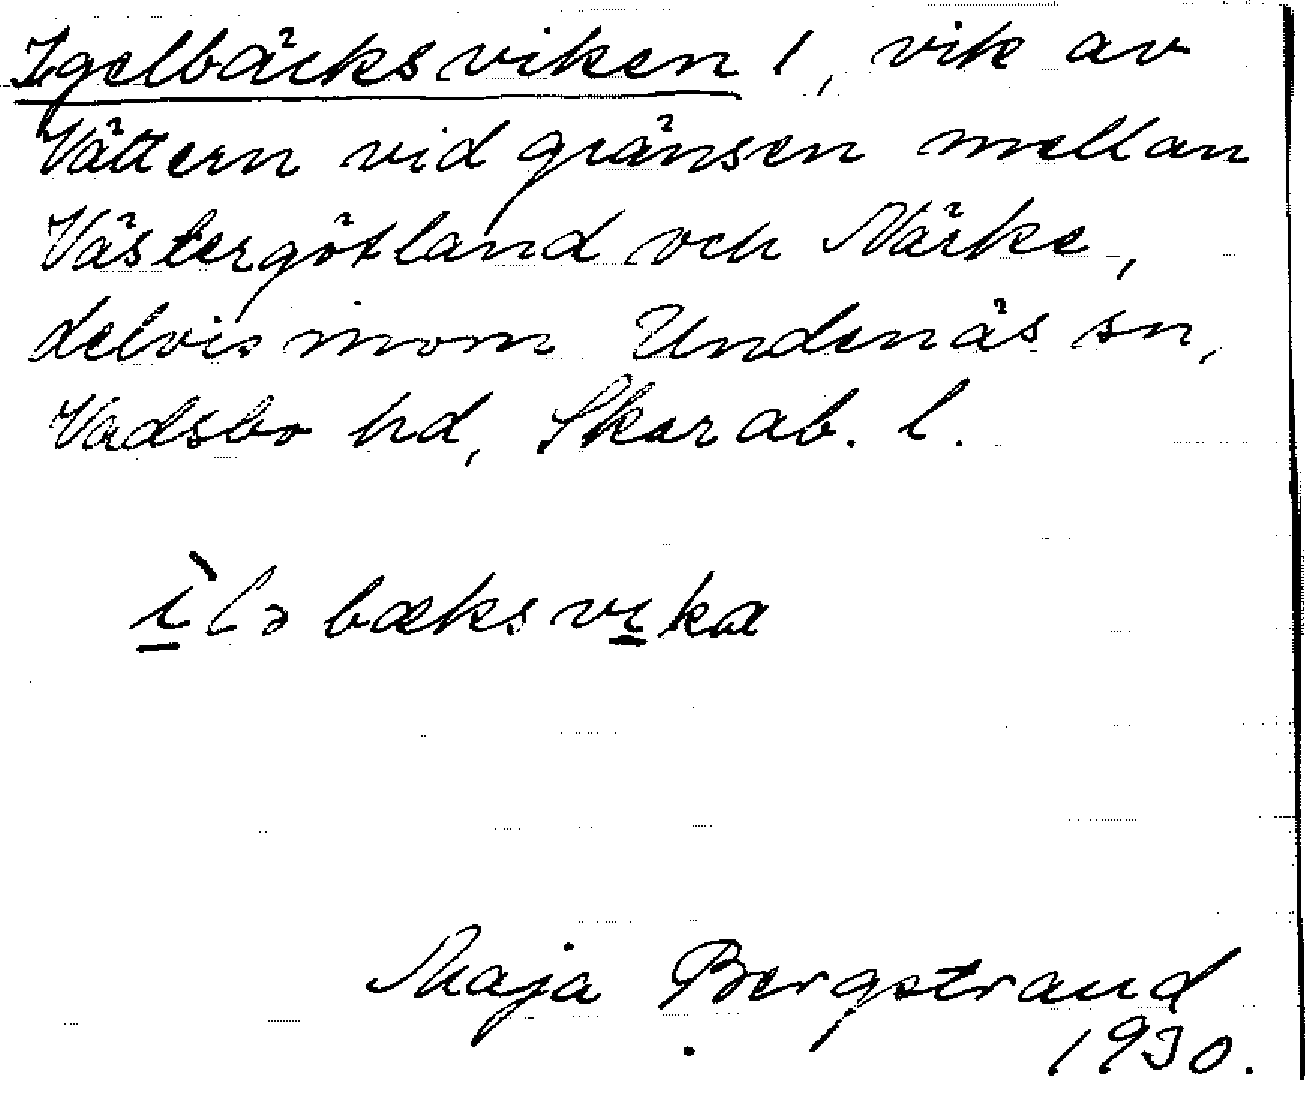 Igelbäcksviken l, vik av
Vättern vid gränsen mellan
Västergötland och Närke,
delvis inom Undenäs sn,
Vadsbo hd, Skarab. l.
ìlə bæksvika
Maja Bergstrand
1930.